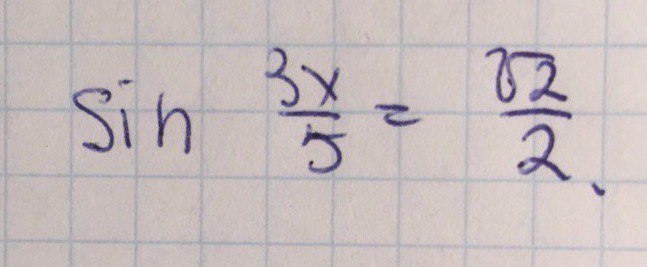 sin 3x/5 = √2/2.